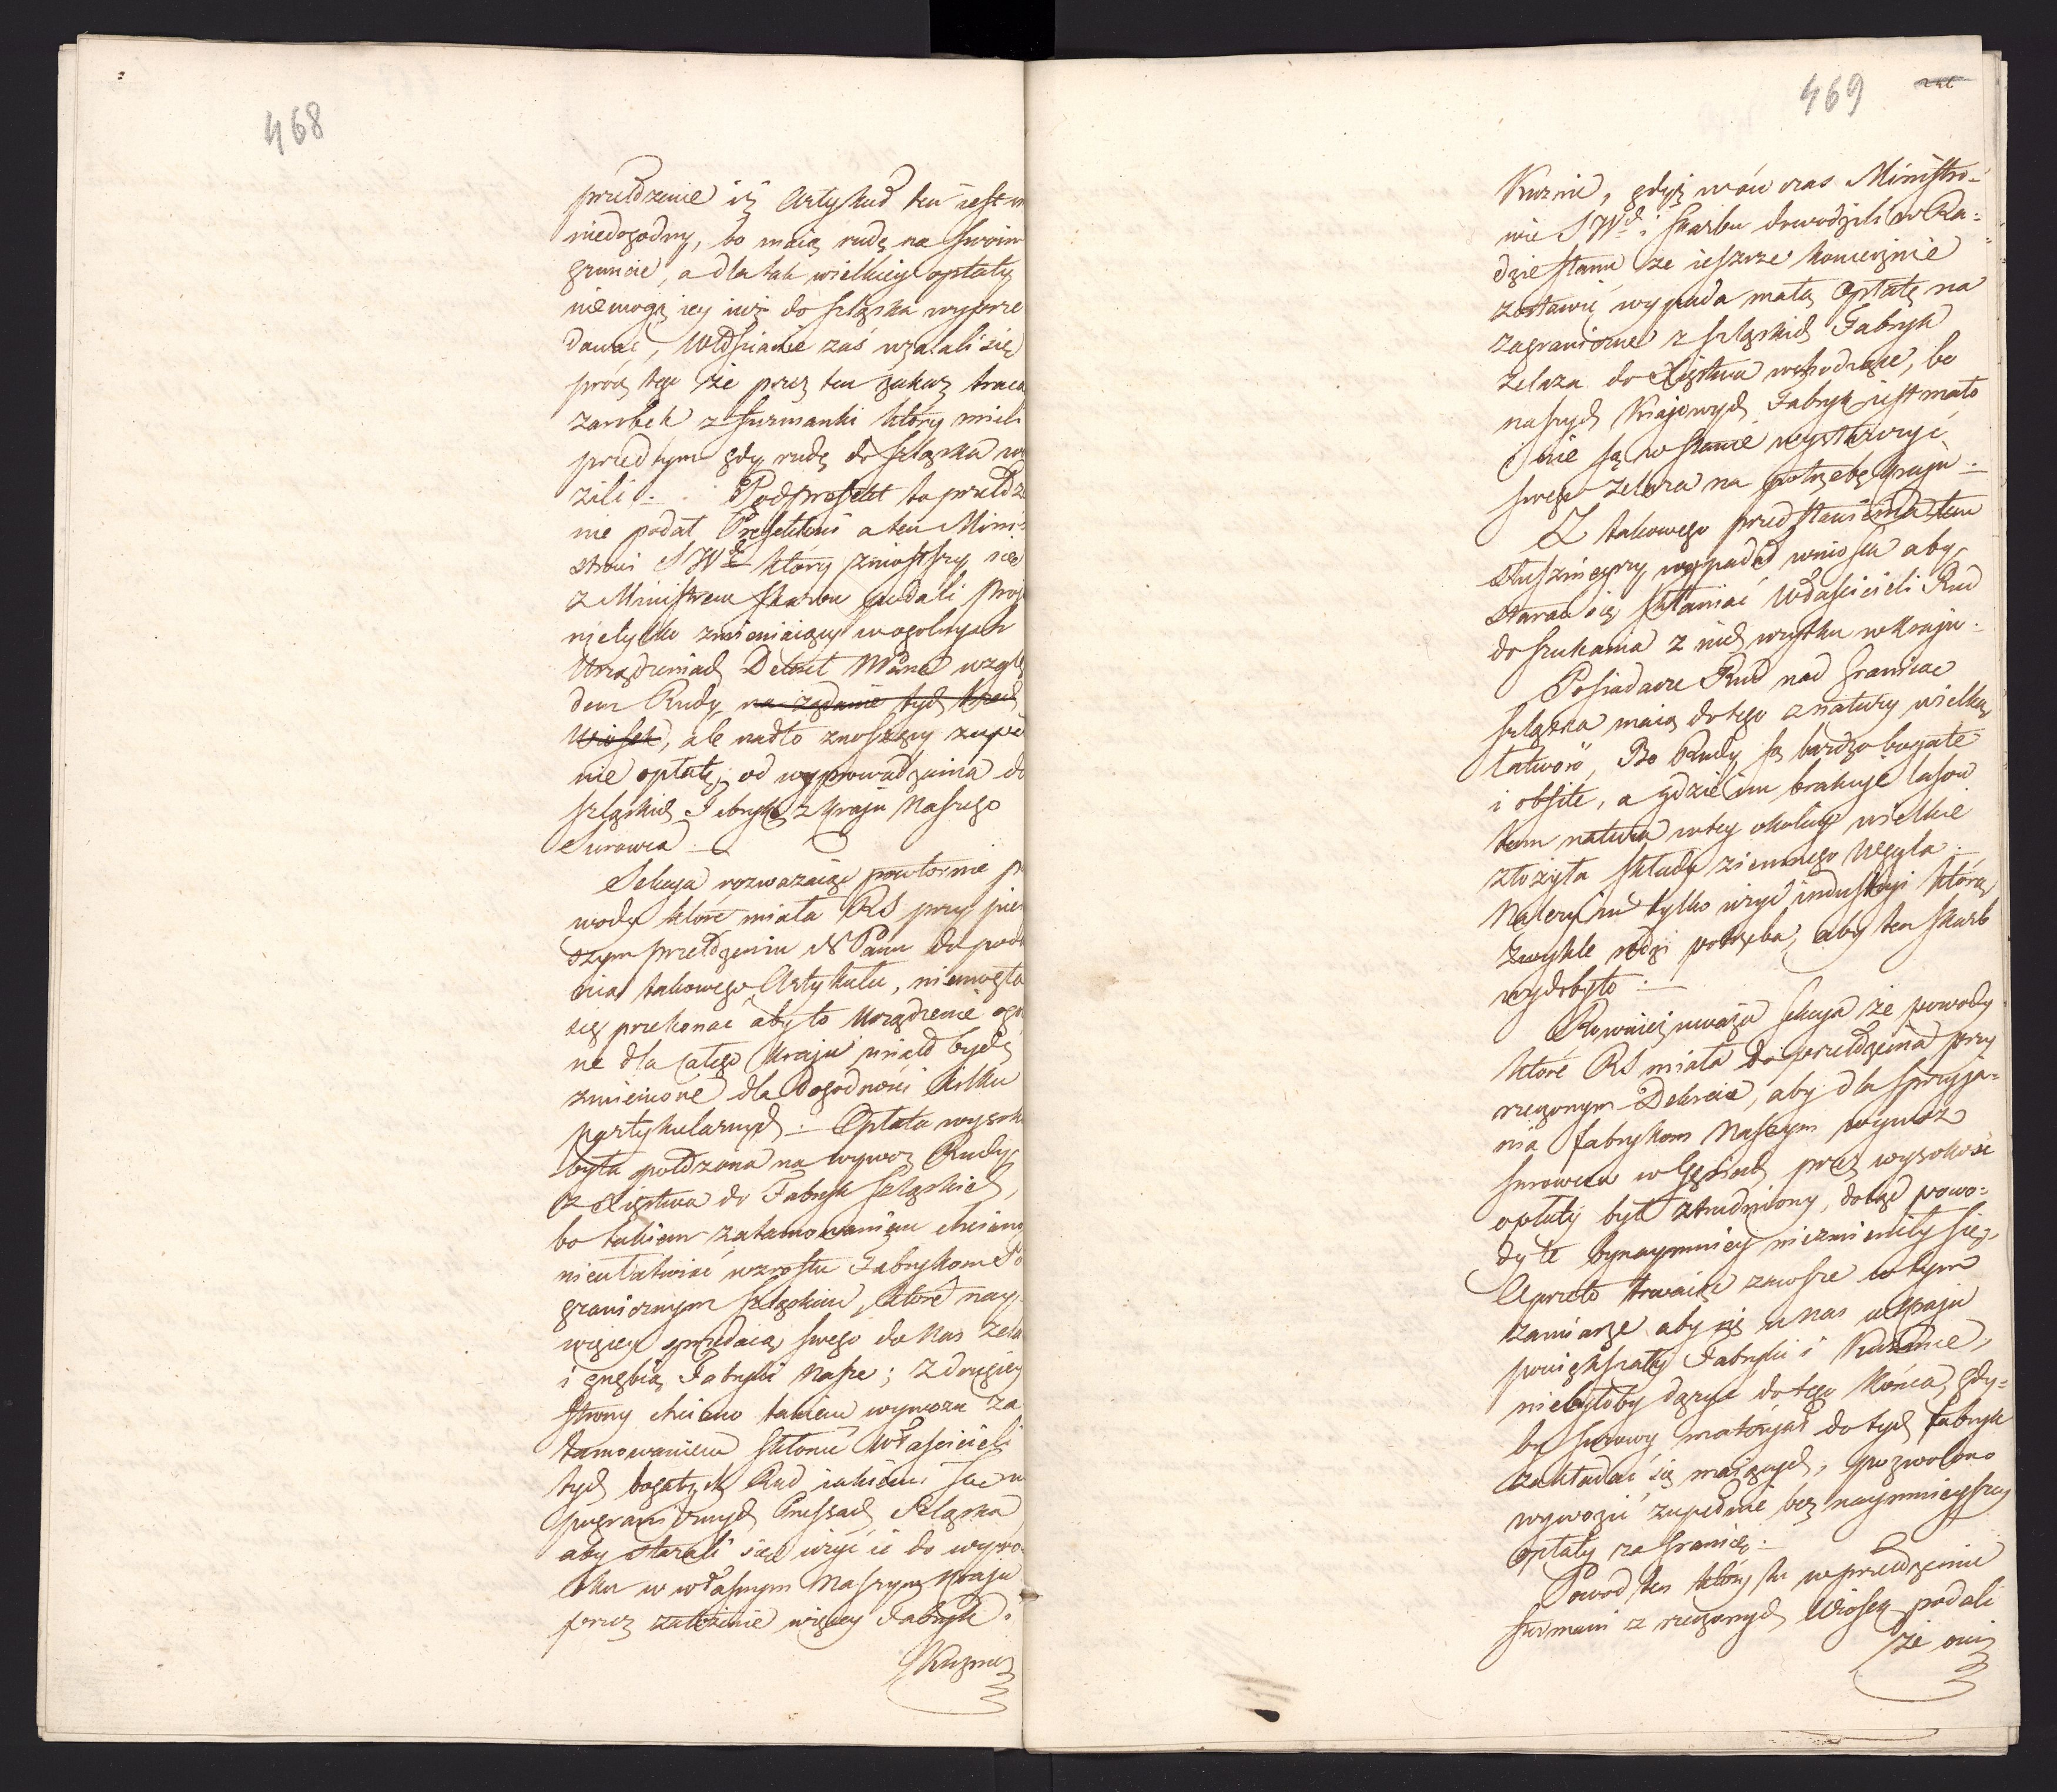 468
przełożenie iż Artykuł ten iest
niedogodny, bo maią rudę na swoim
gruncie, a dla tak wielkiey opłaty
niemogą iey iuż do Szląska wyprze
dawać, Włościanie zaś użalali się
prócz tego że przez ten zakaz tracą
zarobek z furmanki który mieli
przed tym gdy rudę do Szląska wo
zili. Podprefekt to przełoże
nie podał Prefektowi a ten Mini-
strowi S W. który zniosłszy się
z Ministrem Skarbu podali Proj
nietylko zmieniaiący w ogolnych
Urządzeniach Dekret NPana wzglę
dem Rudy na żądanie tych trzech
Wiosek, ale nadto znoszący zupeł
nie opłatę od wyprowadzania do
szląskich Fabryk z kraju Naszego
Surowca.
Sekcya rozważaiąc powtornie po
wody które miała RS przy pier
szym przełożeniu N Panu do poda
nia takowego Artykułu, niemogła
się przekonać aby to Urządzenie ogol
ne dla całego Kraju miało bydź
zmienione dla Dogodności kilku
partykularnych. Opłata wysoka
była położona na wywoz Rudy
z Xięstwa do Fabryk szląskich,
bo takiem zatamowaniem chciano
nieułatwiać wzrostu Fabrykom Po
granicznym szląskim, które nay
więcey sprzedaią swego do Nas żela
i gnębią Fabryki Nasze; z drugiey
strony chciano takiem wywozu za
tamowaniem skłonić Właścicieli
tych bogatych Rud iakiemi są w
pogranicznych Prussach Szląska
aby starali się użyć ie do wyro-
bku w własnym Naszym kraju
przez założenie więcey Fabryk.
Kuznic
469
Kuznic, gdyż wówczas Ministro-
wie S W. i Skarbu dowodzili w Ra-
dzie stanu że ieszcze koniecznie
zostawić wypada małą Opłatę na
zagraniczne z szląskich Fabryk
żelaza do Xięstwa wchodzące, bo
naszych Kraiowych Fabryk iest mało
i nie są w stanie wystarczyć
swego żelaza na potrzebę kraju.
Z takowego przedstawienia tem
słuszniejszy wypadał wniosek aby
starać się skłaniać Właścicieli Rud
do szukania z nich wzysku w kraju.
Posiadacze Rud nad Granicą
szląska maią do tego z natury wielką
łatwość, Bo Rudy są bardzo bogate
i obfite, a gdzie im brakuje lasow
tam natura w tey okolicy wielkie
złożyła składy ziemnego Węgla.
Należy im tylko użyć industryi którą
zwykle rodzi potrzeba, aby ten skarb
wydobyto.
Rowniez uważa Sekcya że powody
które RS miała do przełożenia przy
rzeczonym Dekrecie, aby dla sprzyja-
nia fabrykom Naszym wywoz
surowca w Gęsiach przez wysokość
opłaty był utrudniony, dotąd powo-
dy te bynaymniey niezmieniły się.
A przeto trwaiąc zawsze w tym
zamiarze aby się u nas w kraju
powiększały Fabryki i Kuznice,
niebyłoby dążyć do tego końca, gdy-
by surowy materyał do tych fabryk
zakładać się maiących, pozwolono
wywozić zupełnie bez naymnieyszey
opłaty za Granicę.
Powod ten który tu w przełożeniu
furmani z rzeczonych Wiosek podali
że oni